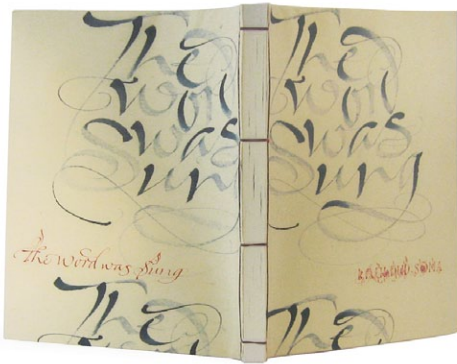 The
word
was
Sung
The word was Sung
The
The
word
was
Sung
The